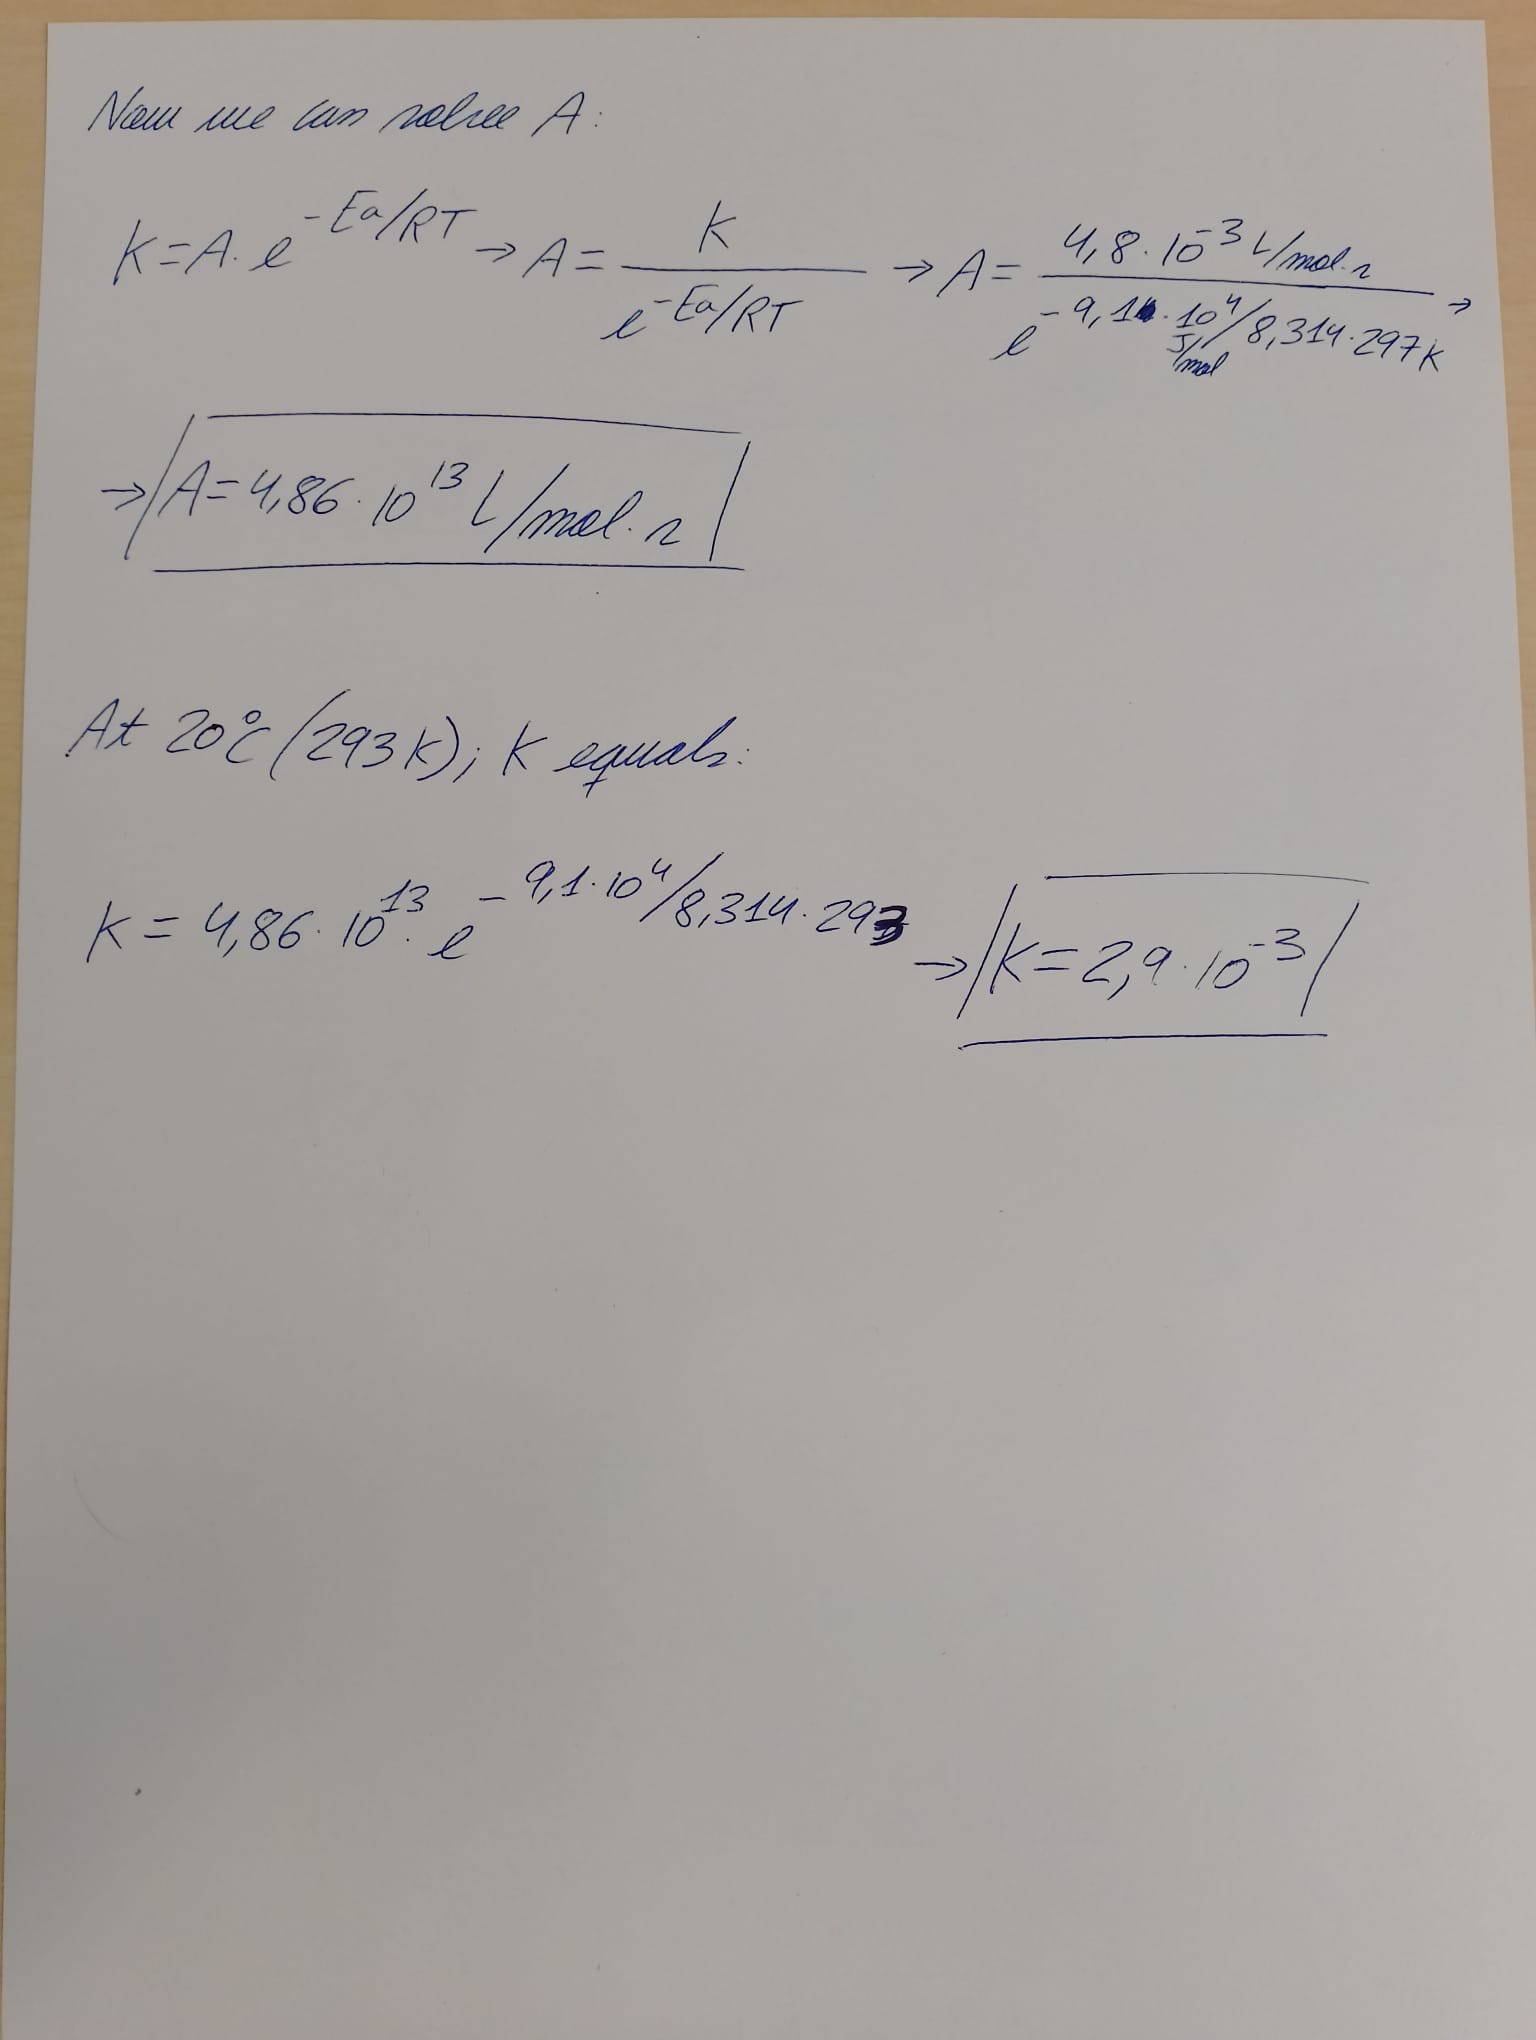 Now we can solve A:
K=A·e^-Ea/RT → A= K / e^-Ea/RT → A= 4,8·10^-3 L/mol·s / e^-9,1·10^4 J/mol/8,314·297K →
→ A=4,86·10^13 L/mol·s
At 20°C (293K); K equals:
K=4,86·10^13·e^-9,1·10^4/8,314·293 → K=2,9·10^-3